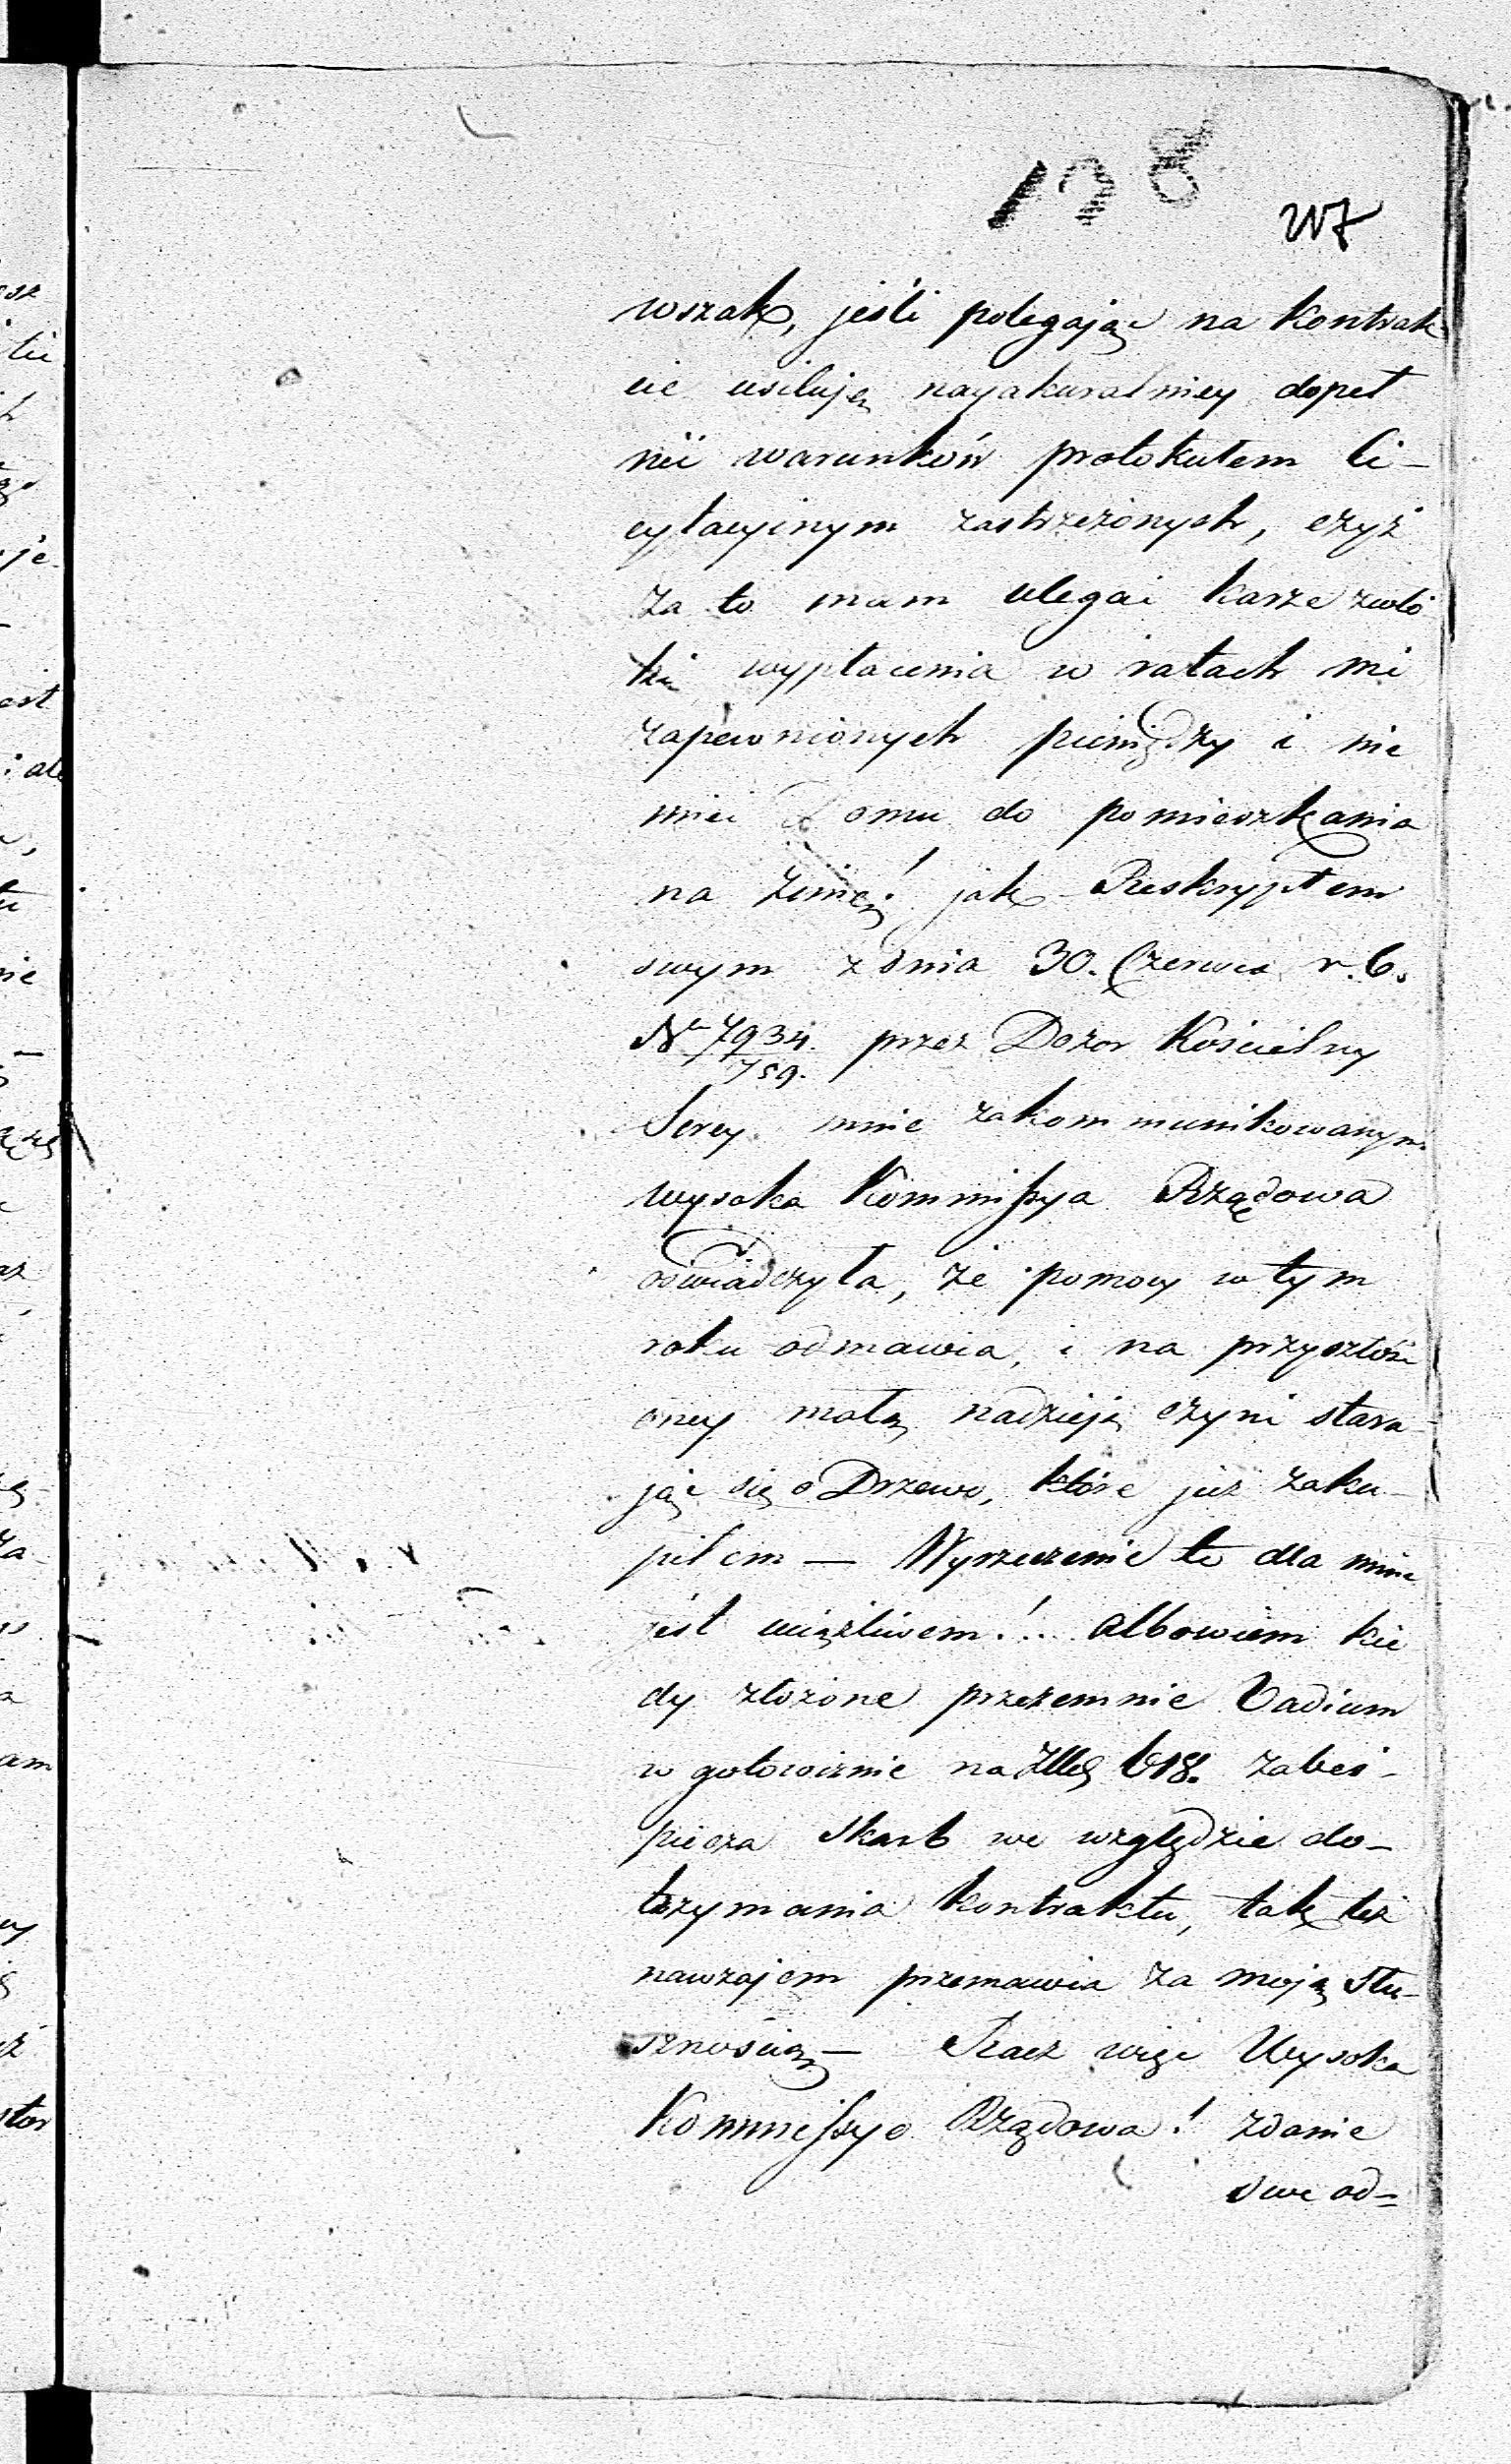 128
wszak, jeśli polegając na Kontrak-
cie usiłuję nayakuratniey dopeł
nić warunków protokułem li-
cytacyinym zastrzeżonych, czyż
za to mam ulegać karze zwło
ki wypłacenia w ratach mi
zapewnionych pieniędzy i nie
mieć Domu do pomieszkania
na Zimę! jak Reskryptem
swym z dnia 30. Czerwca r. b.
No 7934./759. przez Dozor Kościelny
Serey mnie zakommunikowanym
wysoka Kommissya Rządowa
oświadczyła, że pomocy w tym
roku odmawia, i na przyszłość
oney małą nadzieję czyni stara-
jąc się o Drzewo, które już zaku-
piłem — Wyrzeczenie to dla mnie
jest uciążliwem!.. albowiem kie
dy złożone przezemnie Vadium
w gotowiznie na Złł 618. zabes-
piecza Skarb we względzie do-
trzymania Kontraktu, tak też
nawzajem przemawia za moją słu-
sznością — Racz więc Wysoka
Kommissyo Rządowa! zdanie
swe od=
ost
i ale
nie
am
stor